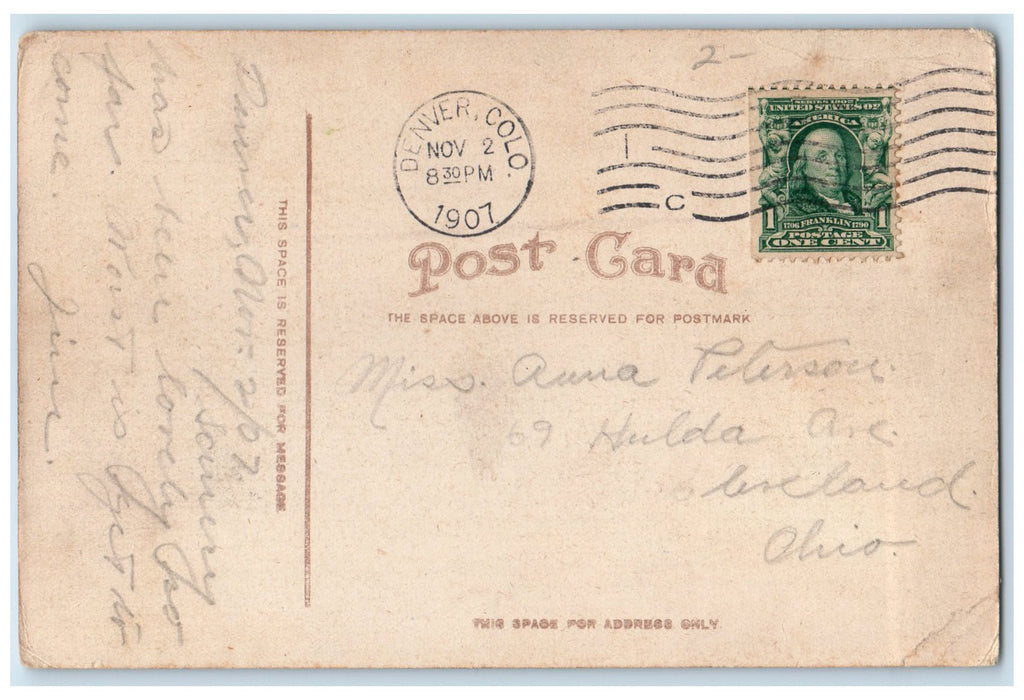 2-
DENVER, COLO.
NOV 2
8 30 PM
1907
C
SERIES 1902
UNITED STATES OF
AMERICA
1 1706 FRANKLIN 1790 1
POSTAGE
ONE CENT
Post Card
THE SPACE ABOVE IS RESERVED FOR POSTMARK
THIS SPACE IS RESERVED FOR MESSAGE
Denver, Nov. 2/07.
Scenery
has been lovely so
far. West is yet to
come.
Jim.
Miss. Anna Peterson.
69 Hulda Ave.
Cleveland.
Ohio.
THIS SPACE FOR ADDRESS ONLY